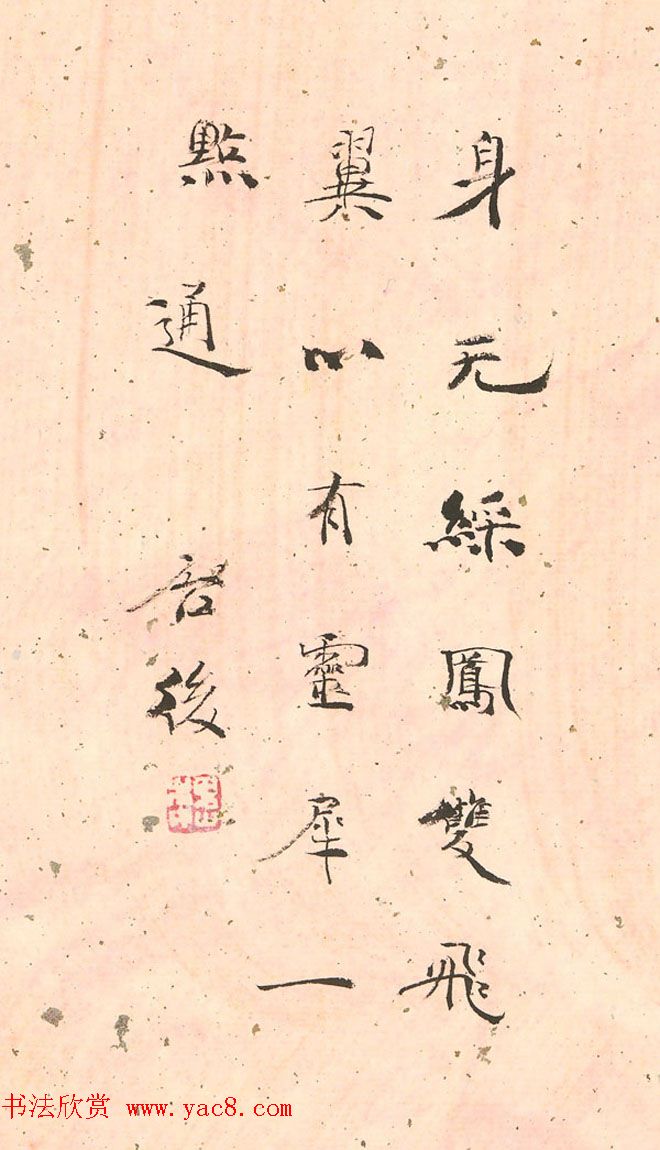 身无綵鳳雙飛
翼心有靈犀一
點通 後
书法欣赏 www.yac8.com